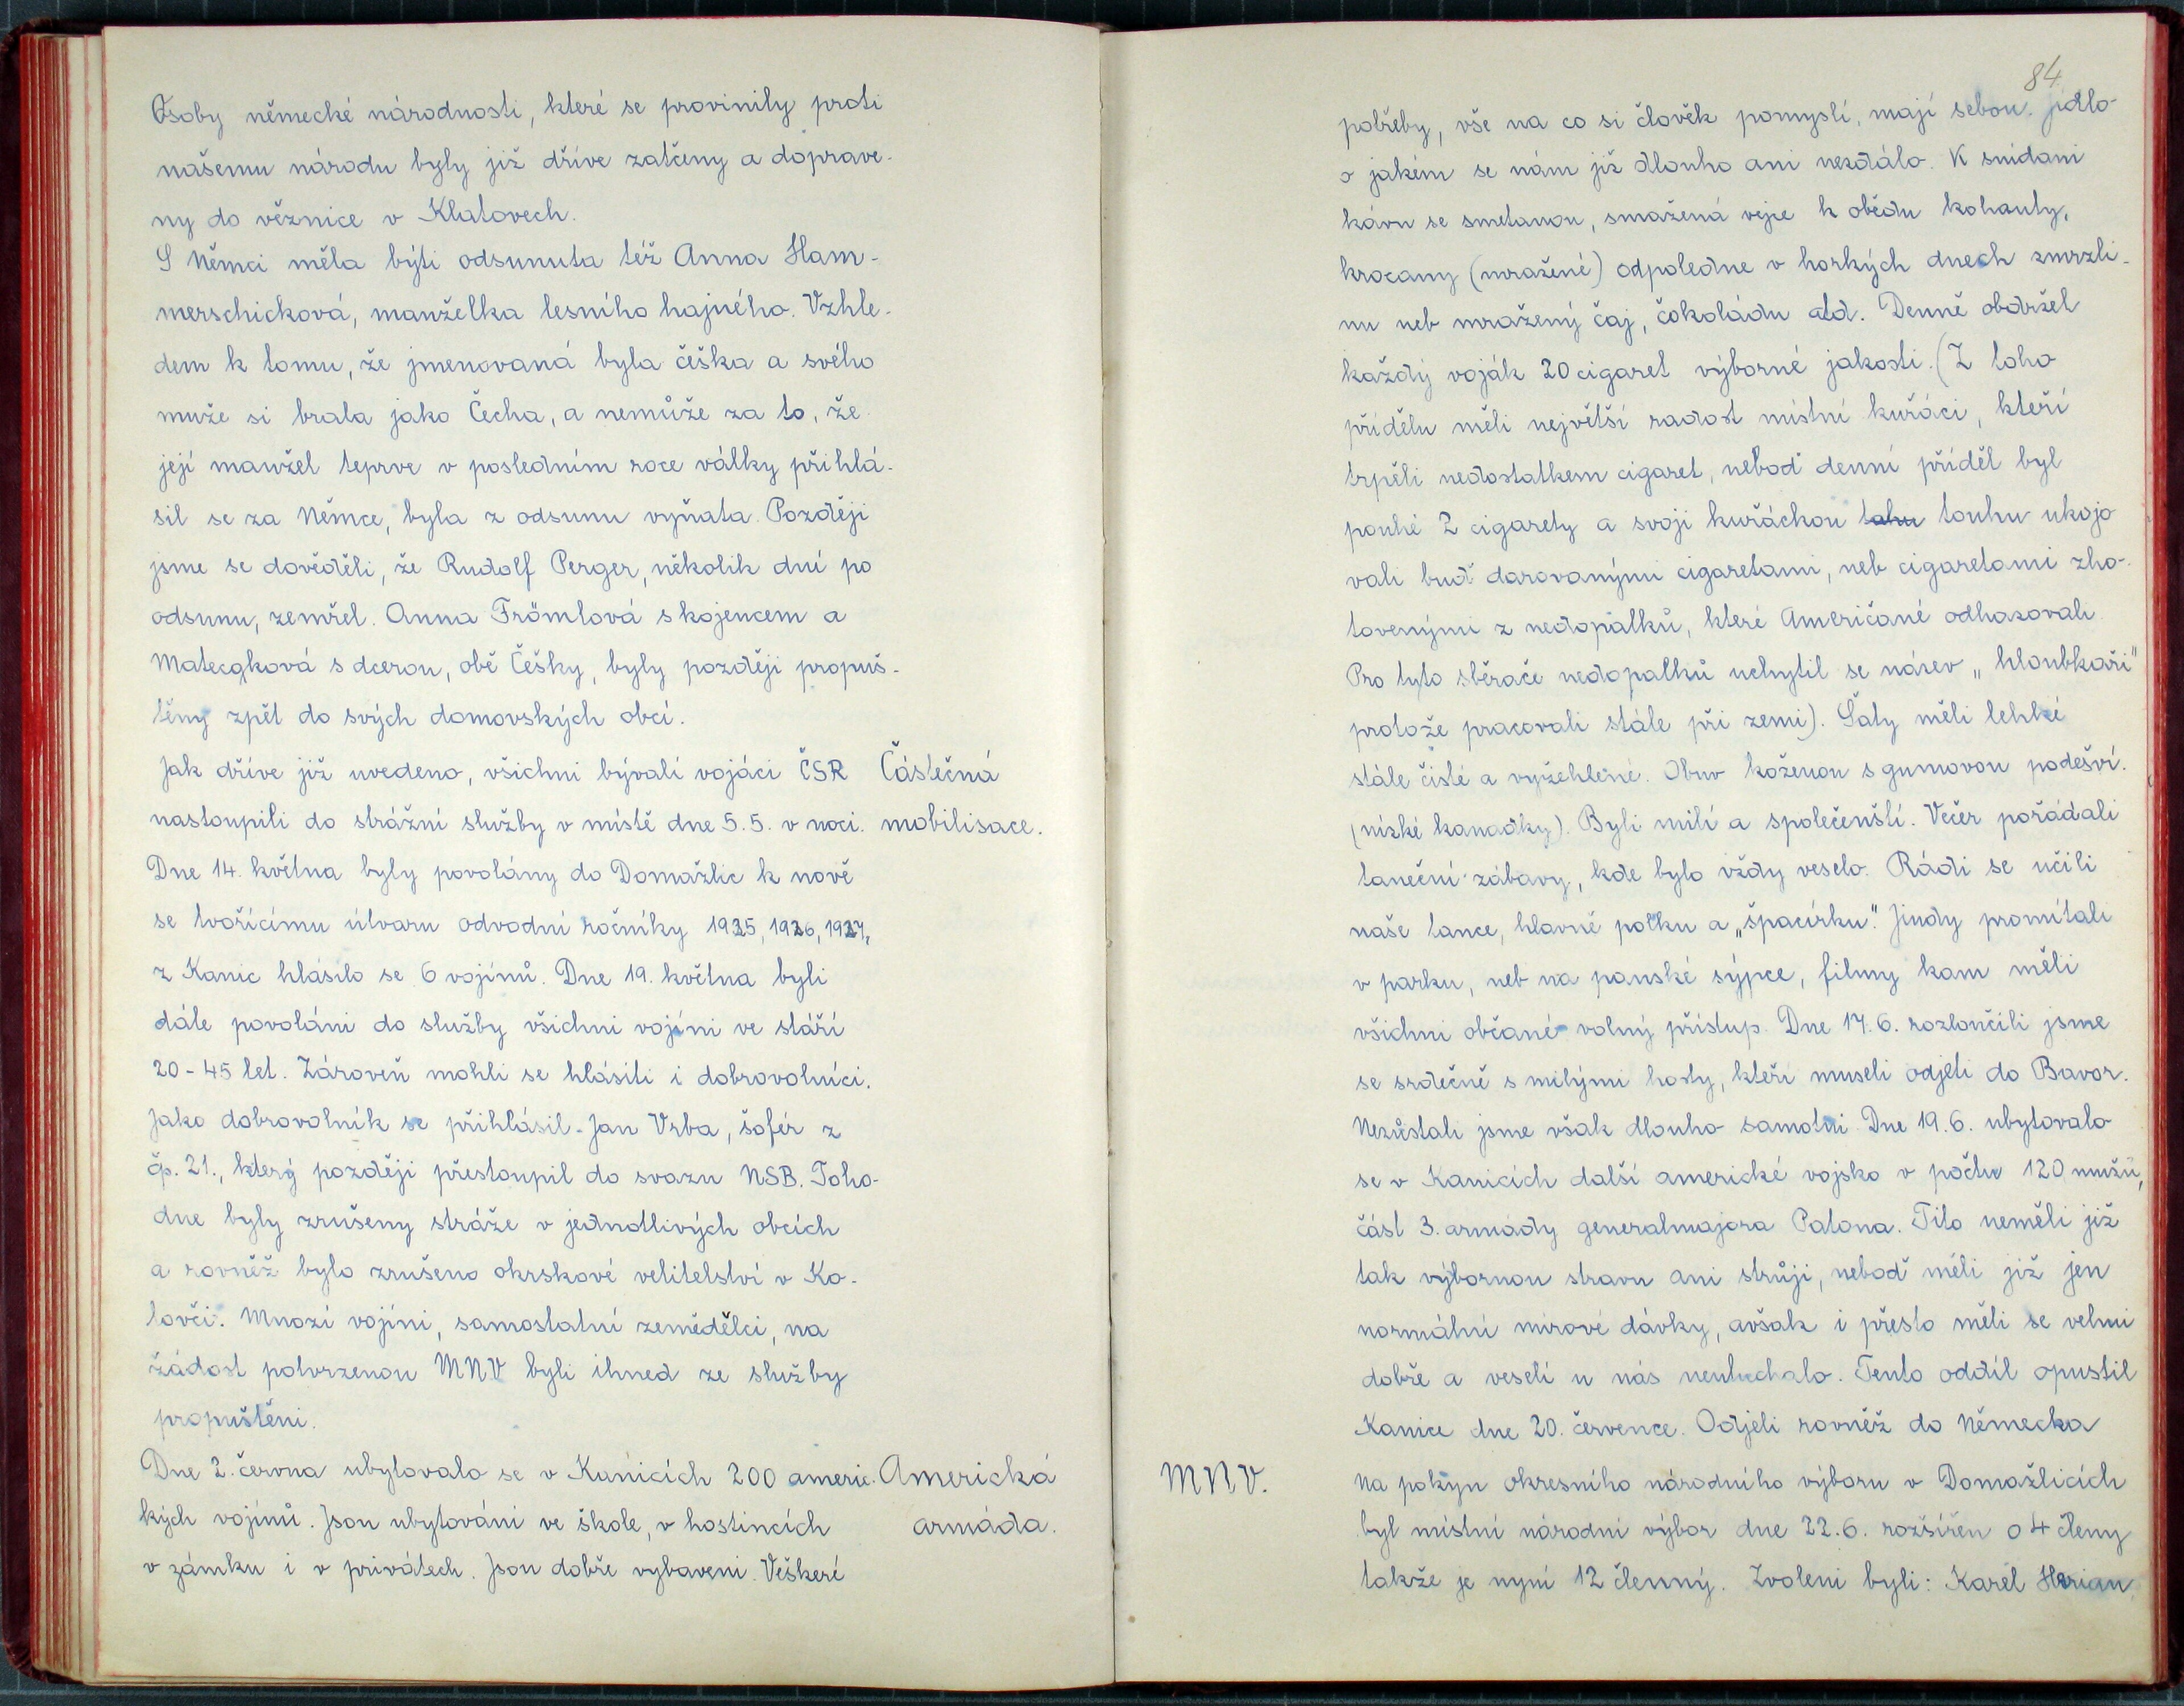 Osoby německé národnosti, které se provinily proti
našemu národu byly již dříve zatčeny a doprave-
ny do věznice v Klatovech.
S Němci měla býti odsunuta též Anna Ham-
merschicková, manželka lesního hajného. Vzhle-
dem k tomu, že jmenovaná byla češka a svého
muže si brala jako Čecha, a nemůže za to, že
její manžel teprve v posledním roce války přihlá-
sil se za Němce, byla z odsunu vyňata. Později
jsme se dověděli, že Rudolf Perger, několik dní po
odsunu, zemřel. Anna Frömlová s kojencem a
Matecgková s dcerou, obě Češky, byly později propuš-
těny zpět do svých domovských obcí.
Jak dříve již uvedeno, všichni bývalí vojáci ČSR Částečná
nastoupili do strážní služby v místě dne 5.5. v noci. mobilisace.
Dne 14. května byly povolány do Domažlic k nově
se tvořícímu útvaru odvodní ročníky 1925, 1926, 1927,
z Kanic hlásilo se 6 vojínů. Dne 19. května byli
dále povoláni do služby všichni vojíni ve stáří
20-45 let. Zároveň mohli se hlásiti i dobrovolníci.
Jako dobrovolník se přihlásil - Jan Vrba, šofér z
čp. 21., který později přestoupil do svazu NSB. Toho-
dne byly zrušeny stráže v jednotlivých obcích
a rovněž bylo zrušeno okrskové velitelství v Ko-
lovči. Mnozí vojíni, samostatní zemědělci, na
žádost potvrzenou MNV byli ihned ze služby
propuštěni.
Dne 2. června ubytovalo se v Kanicích 200 americ- Americká
kých vojínů. Jsou ubytováni ve škole, v hostincích armáda.
v zámku i v privátech. Jsou dobře vybaveni. Veškeré
84
potřeby, vše na co si člověk pomyslí, mají sebou. Jídlo
o jakém se nám již dlouho ani nezdálo. K snídani
kávu se smetanou, smažená vejce k obědu kohouty,
krocany (mražené) odpoledne v horkých dnech zmrzli-
nu neb mražený čaj, čokoládu atd. Denně obdržel
každý voják 20 cigaret výborné jakosti. (Z toho
přídělu měli největší radost místní kuřáci, kteří
trpěli nedostatkem cigaret, neboď denní příděl byl
pouhé 2 cigarety a svoji kuřáckou tahu touhu ukojo
vali buď darovanými cigaretami, neb cigaretami zho-
tovenými z nedopalků, které Američané odhazovali.
Pro tyto sběrače nedopalků uchytil se název „hloubkaři"
protože pracovali stále při zemi). Šaty měli lehké
stále čisté a vyžehlené. Obuv koženou s gumovou podešví.
(nízké kanadky). Byli milí a společenští. Večer pořádali
taneční zábavy, kde bylo vždy veselo. Rádi se učili
naše tance, hlavně polku a „špacírku". Jindy promítali
v parku, neb na panské sýpce, filmy kam měli
všichni občané volný přístup. Dne 17.6. rozloučili jsme
se srdečně s milými hosty, kteří museli odjeti do Bavor.
Nezůstali jsme však dlouho samotni. Dne 19.6. ubytovalo
se v Kanicích další americké vojsko v počtu 120 mužů,
část 3. armády generalmajora Patona. Tito neměli již
tak výbornou stravu ani strůji, neboď měli již jen
normální mírové dávky, avšak i přesto měli se velmi
dobře a veselí u nás neutuchalo. Tento oddíl opustil
Kanice dne 20. července. Odjeli rovněž do Německa
MNV. Na pokyn okresního národního výboru v Domažlicích
byl místní národní výbor dne 22.6. rozšířen o 4 členy
takže je nyní 12 členný. Zvoleni byli: Karel Hrian,